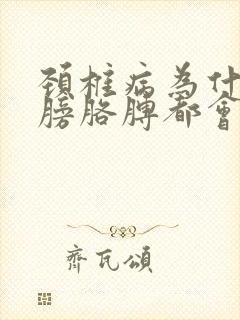 頚椎病為什
膀胳膊都會
齊瓦頌